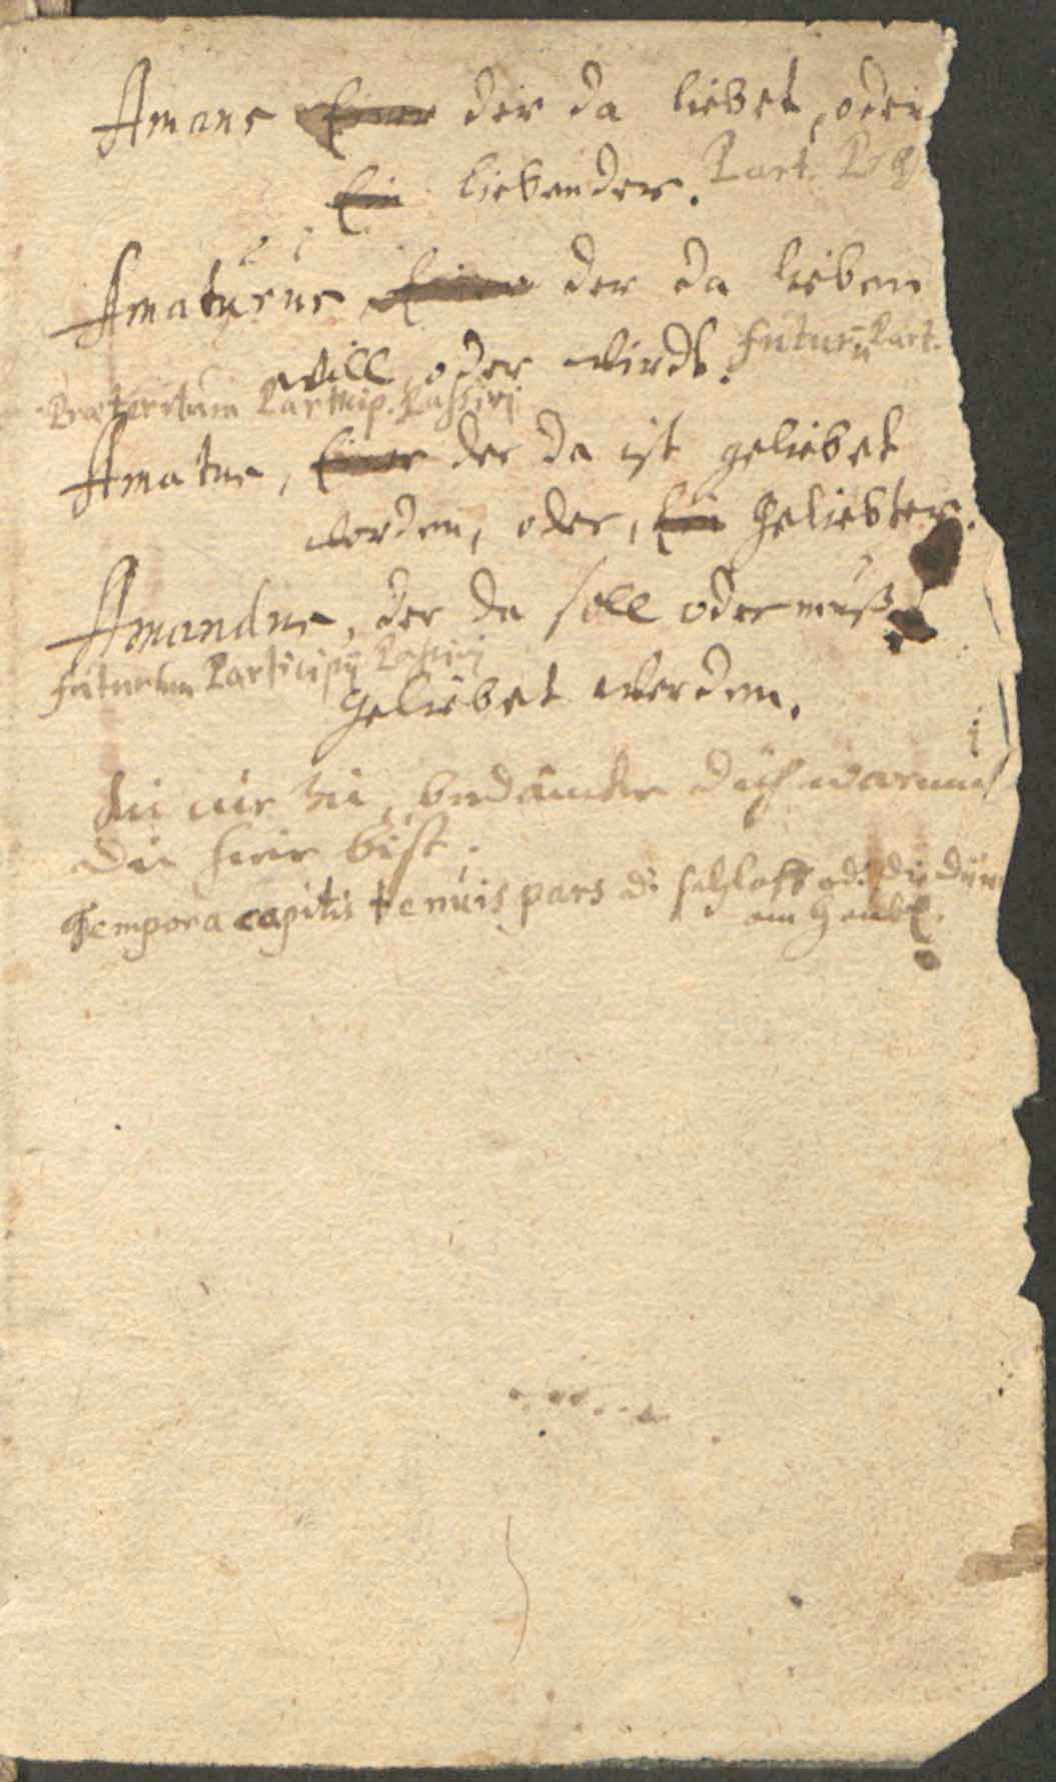 Amans ~~Einer~~ der da liebet, oder
~~Ein~~ liebender. Part.
Amaturus ~~Einer~~ der da lieben
will oder wirdt. Futurū Part.
Præteritum Particip. Passivj
Amatus, ~~Einer~~ der da ist geliebet
worden, oder, ~~Ein~~ Geliebter.
Amandus, der da soll oder muß
Futurum Participij Passivj
Geliebet werden.
warumb
Du hier bist.
Tempora capitis tenuis pars
am Haubt.